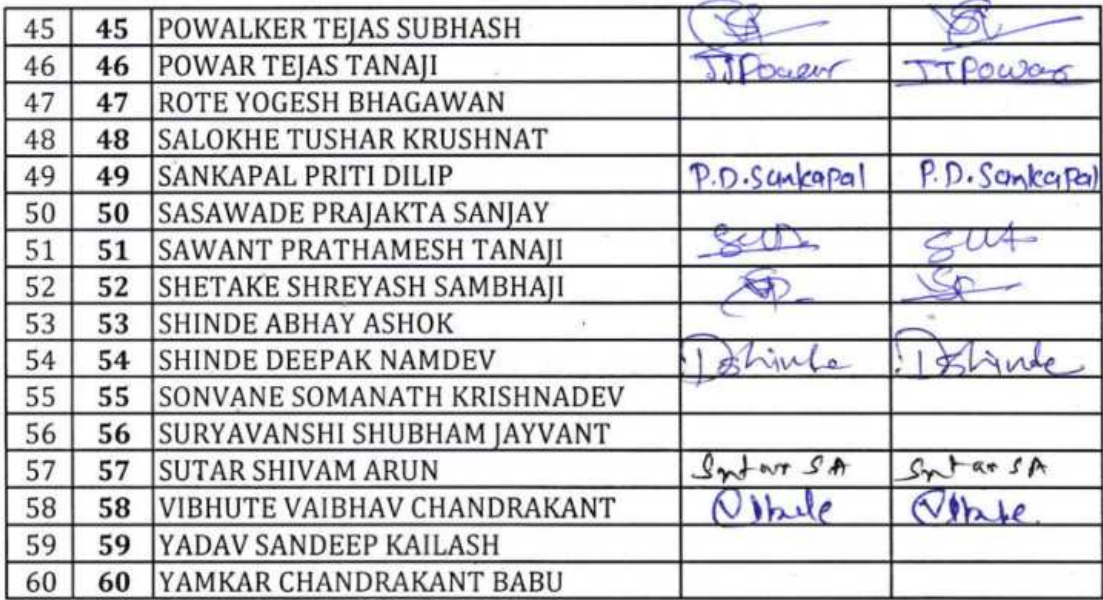 45 45 POWALKER TEJAS SUBHASH
46 46 POWAR TEJAS TANAJI TTPowar TTPowar
47 47 ROTE YOGESH BHAGAWAN
48 48 SALOKHE TUSHAR KRUSHNAT
49 49 SANKAPAL PRITI DILIP P.D.Sankapal P.D.Sankapal
50 50 SASAWADE PRAJAKTA SANJAY
51 51 SAWANT PRATHAMESH TANAJI
52 52 SHETAKE SHREYASH SAMBHAJI
53 53 SHINDE ABHAY ASHOK
54 54 SHINDE DEEPAK NAMDEV DShinde DShinde
55 55 SONVANE SOMANATH KRISHNADEV
56 56 SURYAVANSHI SHUBHAM JAYVANT
57 57 SUTAR SHIVAM ARUN Sutar SA Sutar SA
58 58 VIBHUTE VAIBHAV CHANDRAKANT
59 59 YADAV SANDEEP KAILASH
60 60 YAMKAR CHANDRAKANT BABU